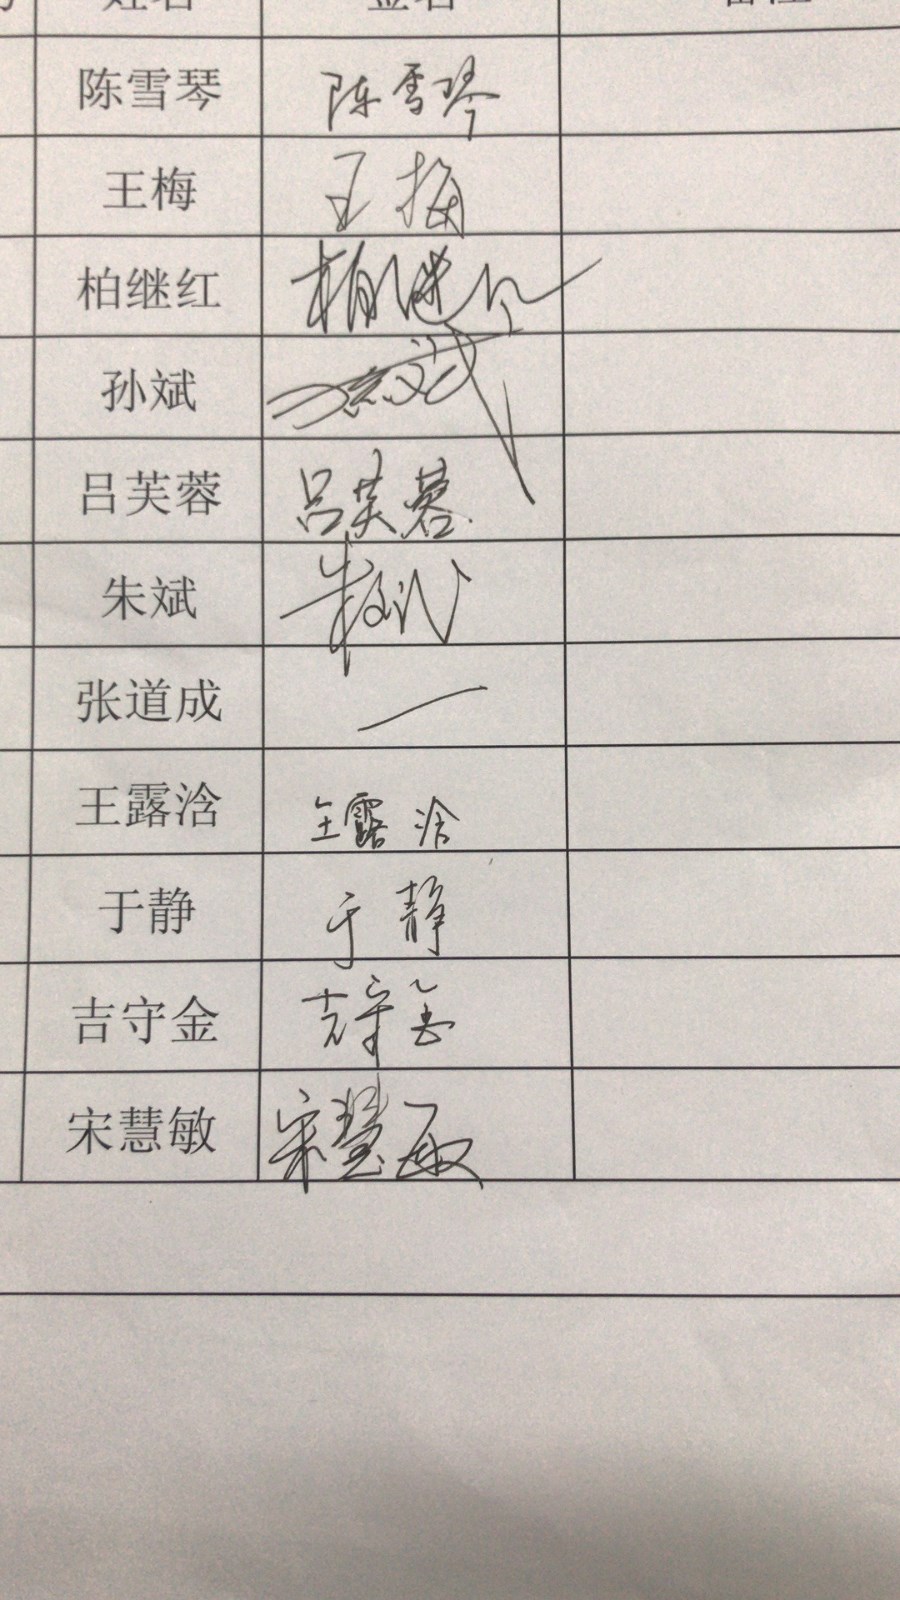 姓名 签名 备注
陈雪琴 陈雪琴
王梅 王梅
柏继红 柏继红
孙斌 孙斌
吕芙蓉 吕芙蓉
朱斌 朱斌
张道成 一
王露浛 王露浛
于静 于静
吉守金 吉守金
宋慧敏 宋慧敏